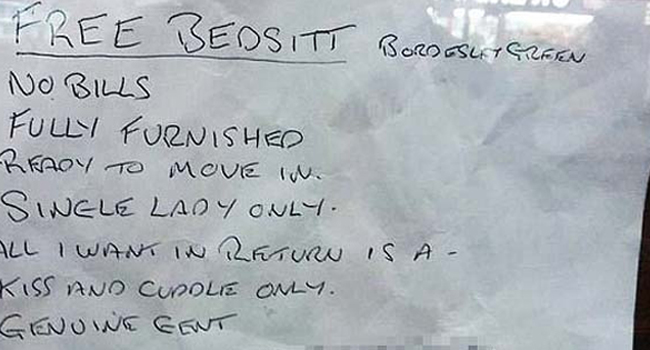 FREE BEDSITT BORDESLEY GREEN
NO BILLS
FULLY FURNISHED
READY TO MOVE IN.
SINGLE LADY ONLY.
ALL I WANT IN RETURN IS A -
KISS AND CUDDLE ONLY.
GENUINE GENT